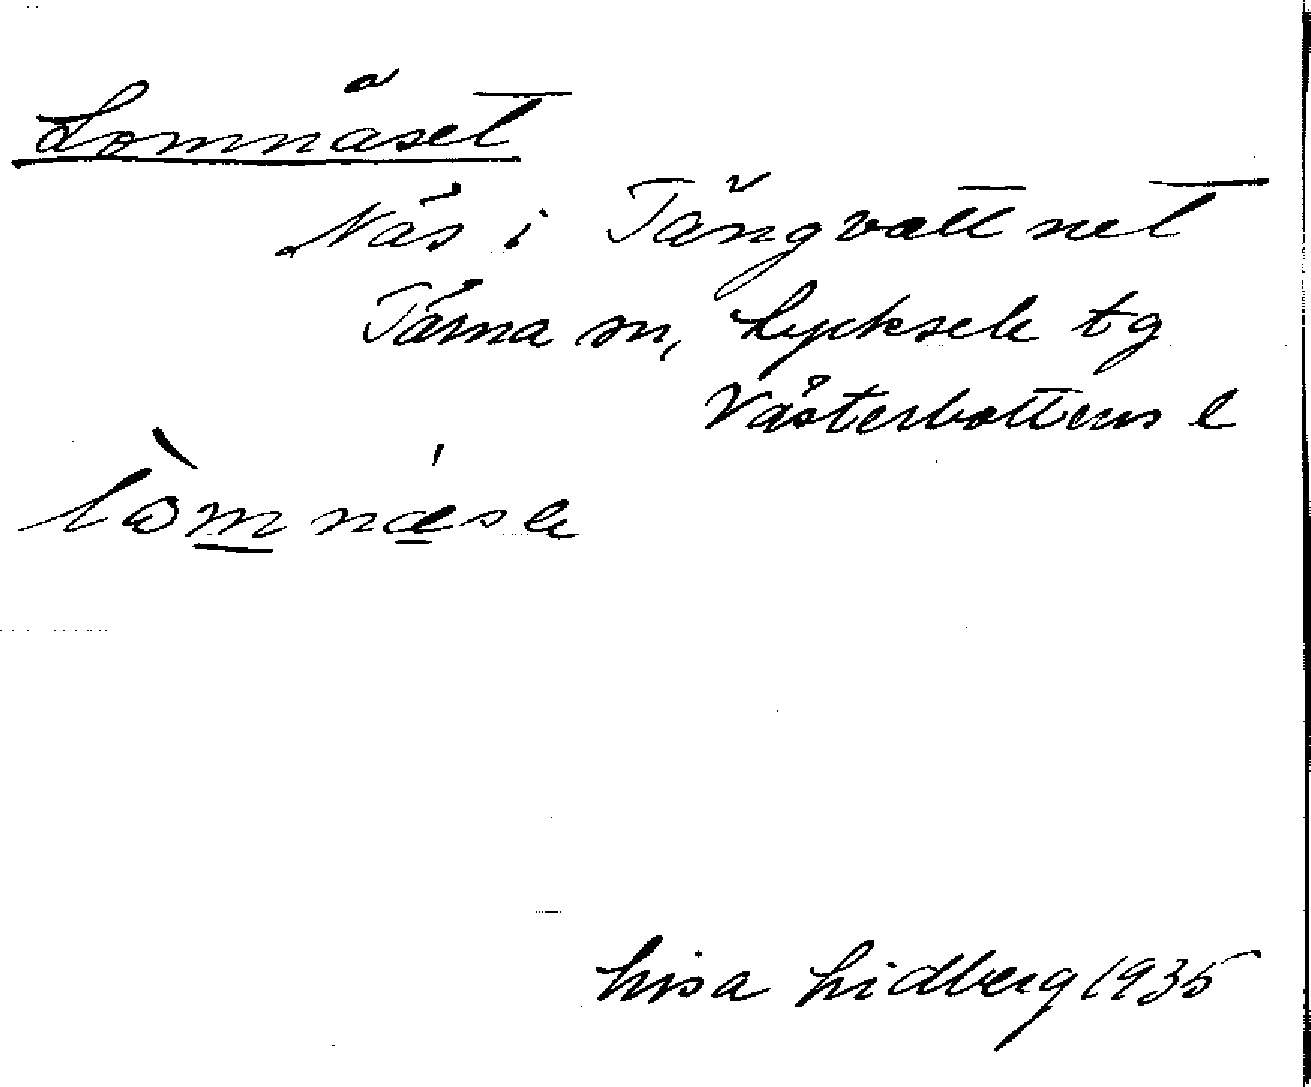 Lomnäset
Näs i Tängvattnet
Tärna sn, Lycksele tg
Västerbottens l
lòmnǽse
Lisa Lidberg 1935